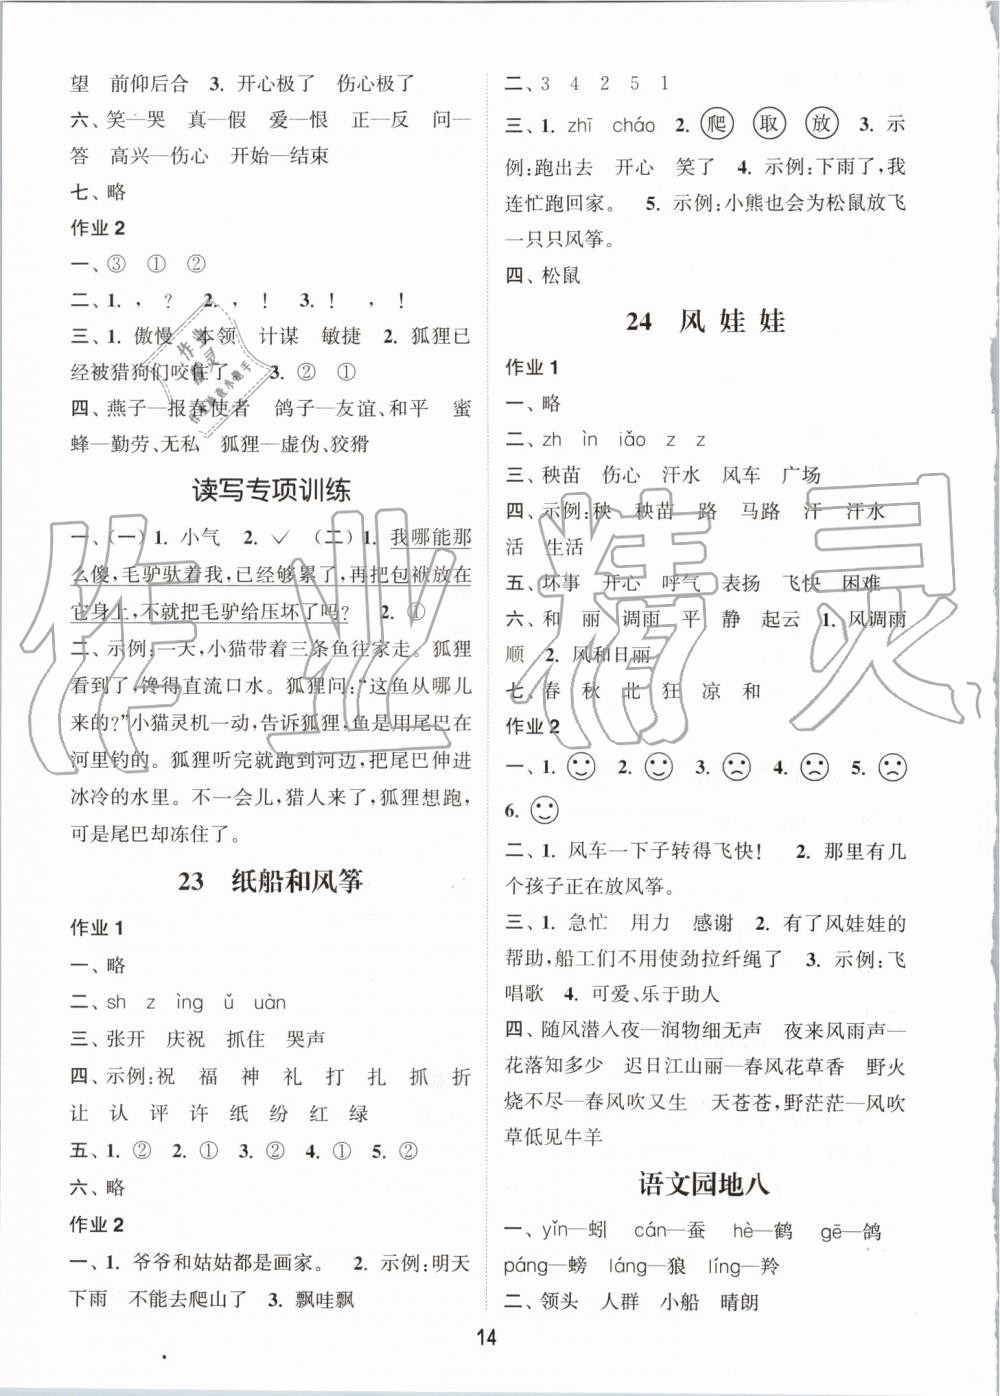 望 前仰后合 3. 开心极了 伤心极了
六、笑—哭 真—假 爱—恨 正—反 问—
答 高兴—伤心 开始—结束
七、略
作业 2
一、③ ① ②
二、1. ，？ 2. ，！ 3. ！，！
三、1. 傲慢 本领 计谋 敏捷 2. 狐狸已
经被猎狗们咬住了 3. ② ①
四、燕子—报春使者 鸽子—友谊、和平 蜜
蜂—勤劳、无私 狐狸—虚伪、狡猾
读写专项训练
一、(一)1. 小气 2. ✓ (二)1. 我哪能那
么傻,毛驴驮着我,已经够累了,再把包袱放在
它身上,不就把毛驴给压坏了吗? 2. ①
二、示例:一天,小猫带着三条鱼往家走。狐狸
看到了,馋得直流口水。狐狸问:“这鱼从哪儿
来的?”小猫灵机一动,告诉狐狸,鱼是用尾巴在
河里钓的。狐狸听完就跑到河边,把尾巴伸进
冰冷的水里。不一会儿,猎人来了,狐狸想跑,
可是尾巴却冻住了。
23 纸船和风筝
作业 1
一、略
二、sh z ìng ǔ uàn
三、张开 庆祝 抓住 哭声
四、示例:祝 福 神 礼 打 扎 抓 折
让 认 评 许 纸 纷 红 绿
五、1. ② 2. ① 3. ② 4. ① 5. ②
六、略
作业 2
一、1. 爷爷和姑姑都是画家。 2. 示例:明天
下雨 不能去爬山了 3. 飘哇飘
二、3 4 2 5 1
三、1. zhī cháo 2. 爬 取 放 3. 示
例:跑出去 开心 笑了 4. 示例:下雨了,我
连忙跑回家。 5. 示例:小熊也会为松鼠放飞
一只只风筝。
四、松鼠
24 风娃娃
作业 1
一、略
二、zh ìn iǎo z z
三、秧苗 伤心 汗水 风车 广场
四、示例:秧 秧苗 路 马路 汗 汗水
活 生活
五、坏事 开心 呼气 表扬 飞快 困难
六、和 丽 调雨 平 静 起云 1. 风调雨
顺 2. 风和日丽
七、春 秋 北 狂 凉 和
作业 2
一、1. 2. 3. 4. 5.
6.
二、1. 风车一下子转得飞快! 2. 那里有好几
个孩子正在放风筝。
三、1. 急忙 用力 感谢 2. 有了风娃娃的
帮助,船工们不使劲拉纤绳了 3. 示例:飞
唱歌 4. 可爱、乐于助人
四、随风潜入夜—润物细无声 夜来风雨声—
花落知多少 迟日江山丽—春风花草香 野火
烧不尽—春风吹又生 天苍苍,野茫茫—风吹
草低见牛羊
语文园地八
一、yǐn—蚓 cán—蚕 hè—鹤 gē—鸽
páng—螃 láng—狼 líng—羚
二、领头 人群 小船 晴朗
14
作业精灵